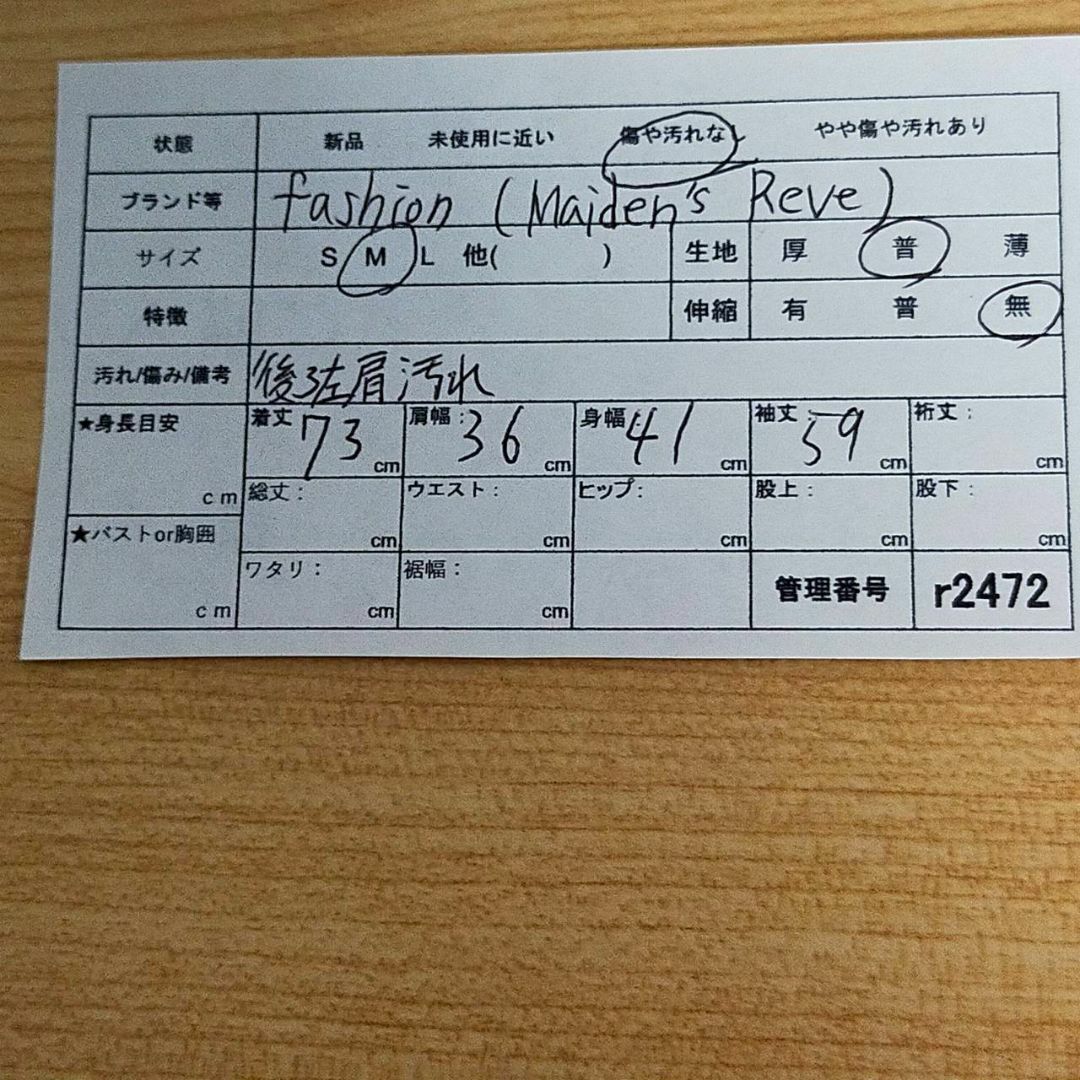 状態 新品 未使用に近い 傷や汚れなし やや傷や汚れあり
ブランド等 fashion (Maiden's Reve)
サイズ S M L 他( ) 生地 厚 普 薄
特徴 伸縮 有 普 無
汚れ/傷み/備考 後ろ左肩汚れ
★身長目安 cm 着丈 73 cm 肩幅: 36 cm 身幅: 41 cm 袖丈 59 cm 裄丈: cm
総丈: cm ウエスト: cm ヒップ: cm 股上: cm 股下: cm
★バストor胸囲 cm ワタリ: cm 裾幅: cm 管理番号 r2472